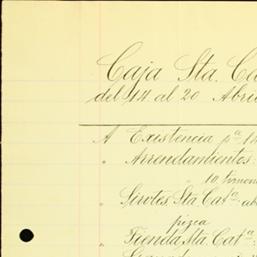 Caja Sta. Ca
del 14 al 20 Abri
A Existencia pa. 14
" Arrendamientos:
" 10 
" Sta. Cata. 
pizca
" Tienda Sta. Cata.